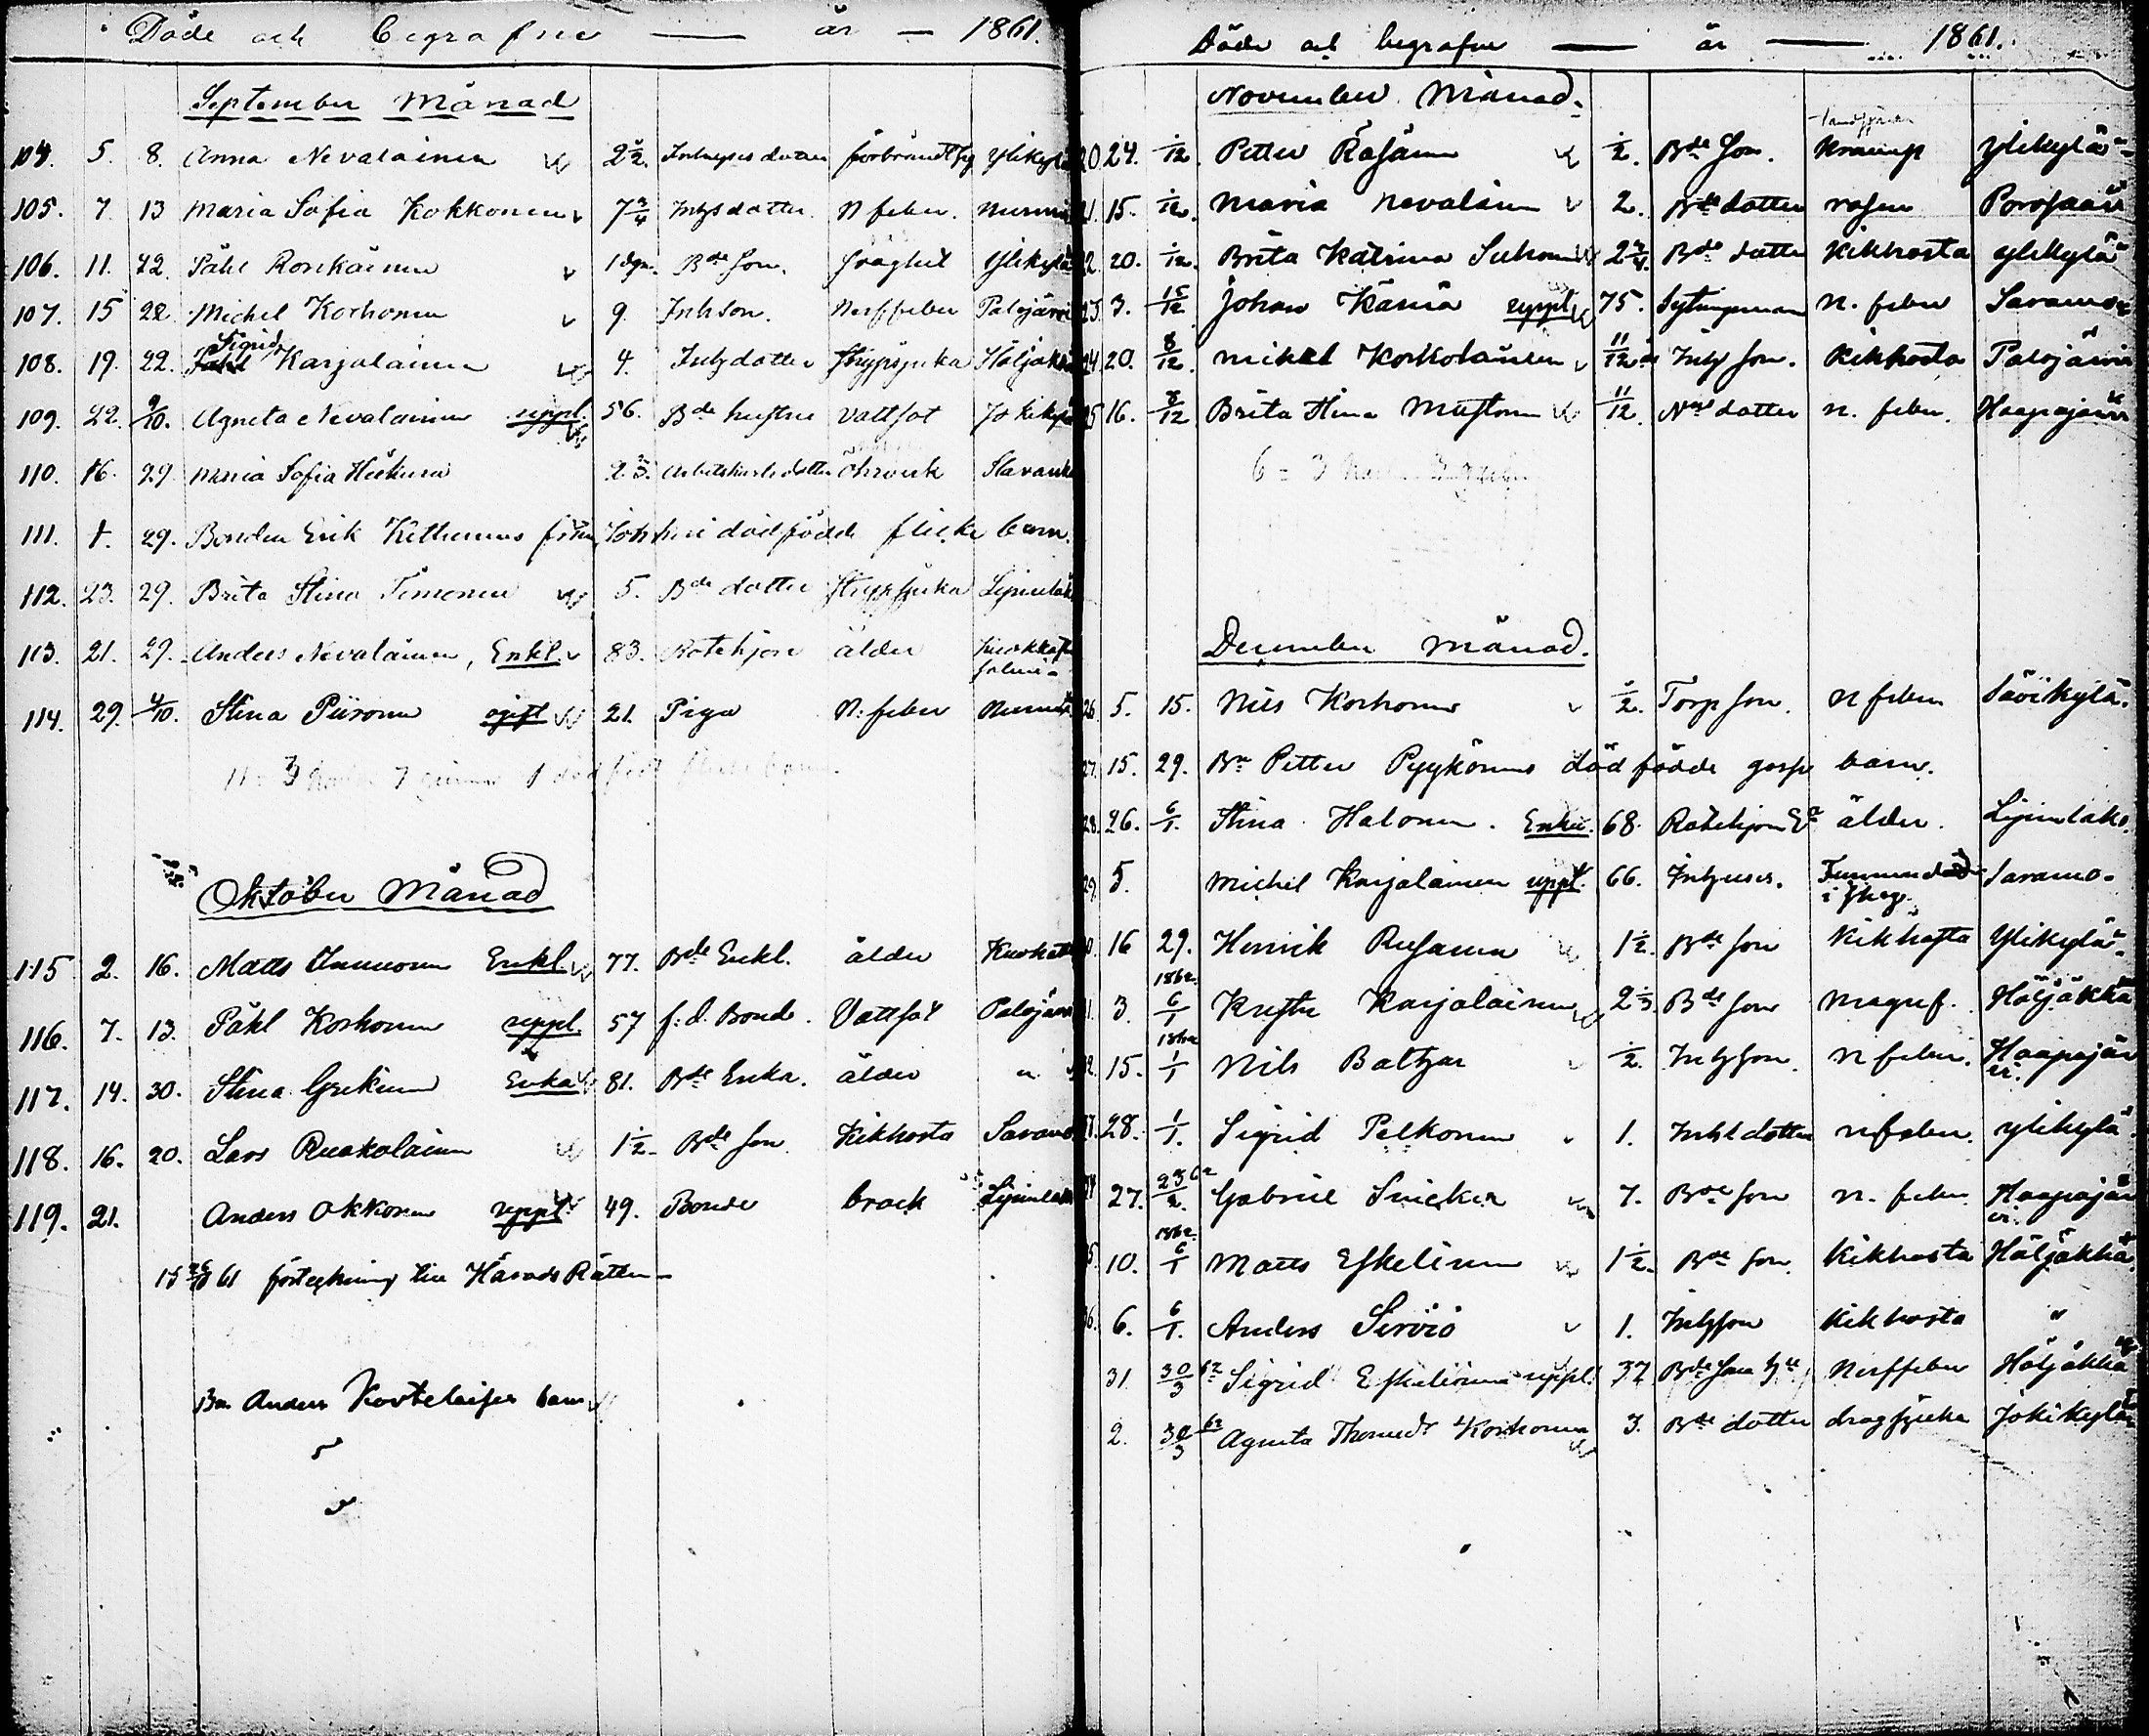 Döde och begrafne — år — 1861.
September Månad
104. 5. 8. Anna Nevalainen 2 1/2. Inhyses dotter förbrändt sig Ylikylä
105. 7. 13 Maria Sofia Kokkonen 7 3/4 Inhys dotter. N feber. Nurmi
106. 11. 22. Påhl Ronkainen 1 dgr. Bde son. svaghet Ylikylä
107. 15 22 Michel Korhonen 9. Inh son. Nerffeber Palojärvi
108. 19. 22. Sigrid Karjalainen 4. Inhys dotter Strypsjuka Höljäkkä
109. 22. 9/10. Agneta Nevalainen uppl. 56. Bde hustru Vattsot Jokikylä
110. 16. 29. Maria Sofia Heikura 2 2/3. Arbetskarls dotter Saramo
111. t. 29. Bonden Erik Kettunens dödfödde flicke barn.
112. 23. 29. Brita Stina Timonen 5. Bde dotter Strypsjuka Lipinlaks
113. 21. 29. Anders Nevalainen, Enkl. 83. Rotehjon ålder
114. 29. 4/10. Stina Piironen ogift 21. Piga N: feber Nurmes
Oktober Månad
115 2. 16. Matts Immonen Enkl. 77. Bde Enkl. ålder
116. 7. 13. Påhl Korhonen uppl. 57 f: d. Bonde. Vattsot Palojärvi
117. 14. 30. Stina Enka 81. Bde Enka. ålder "
118. 16. 20. Lars Ruakolainen 1 1/2. Bde son Kikhosta Saramo
119. 21. Anders Okkonen uppl. 49. Bonde brock Lipinlaks
61 förteckning till Härads Rätten —
Bn Anders barn
Döde och begrafne — år — 1861.
November Månad.
20 24. 1/12 Petter Räsänen 1/2. Bde Son. Kramp Ylikylä
21. 15. 1/12. Maria Nevalainen 2. Bde dotter rosen Porosaari
22. 20. 1/12. Brita Katrina Suhonen 2 3/4. Bde dotter Kikhosta Ylikylä
23 3. 15/12 Johan Kärnä uppl. 75. Sytningsman N. feber Saramo
24 20. 8/12. Mikel Korkolainen 11/12. Inhys son. Kikhosta Palojärvi
25 16. 8/12 Brita Stina Mustonen 11/12. dotter N. feber. Haapajärvi
December Månad.
26 5. 15. Nils Korhonen 1/2. Torp son. N feber Savikylä.
27. 15. 29. Bn Petter Pyykönens död födde gosse barn.
28. 26. 6/1. Stina Halonen. Enka. 68. Rotehjon ålder. Lipinlaks
29. 5. Michel Karjalainen uppl. 66. Inhyses. Funnen död i skog. Saramo.
30. 16 29. Henrik Rusanen 1 1/2. Bde son Kikhosta Ylikylä
1862.
31. 3. 6/1 Krister Karjalainen 2 1/3. Bde son magref. Höljäkkä
1862
32. 15. 1/1 Nils Baltzar 1/2. Inhys son. N feber. Haapajärvi.
33. 28. 1/1. Sigrid Pelkonen 1. Inhl dotter nfeber. Ylikylä
34 27. 23/2. 62 Gabriel Snicker 7. Bde son N. feber Haapajärvi.
1862.
35. 10. 6/1 Matts Eskelinen 1 1/2. Bde son. Kikhosta Höljäkkä
36. 6. 6/1. Anders Serviö 1. Inhysson Kikhosta "
31 30/3 62 Sigrid Eskelinen uppl. 37 Bde sons hu Nerffeber Höljäkkä
2. 30/3 62 Agneta Thomasdr Korhonen 3. Bde dotter dragsjuka Jokikylä